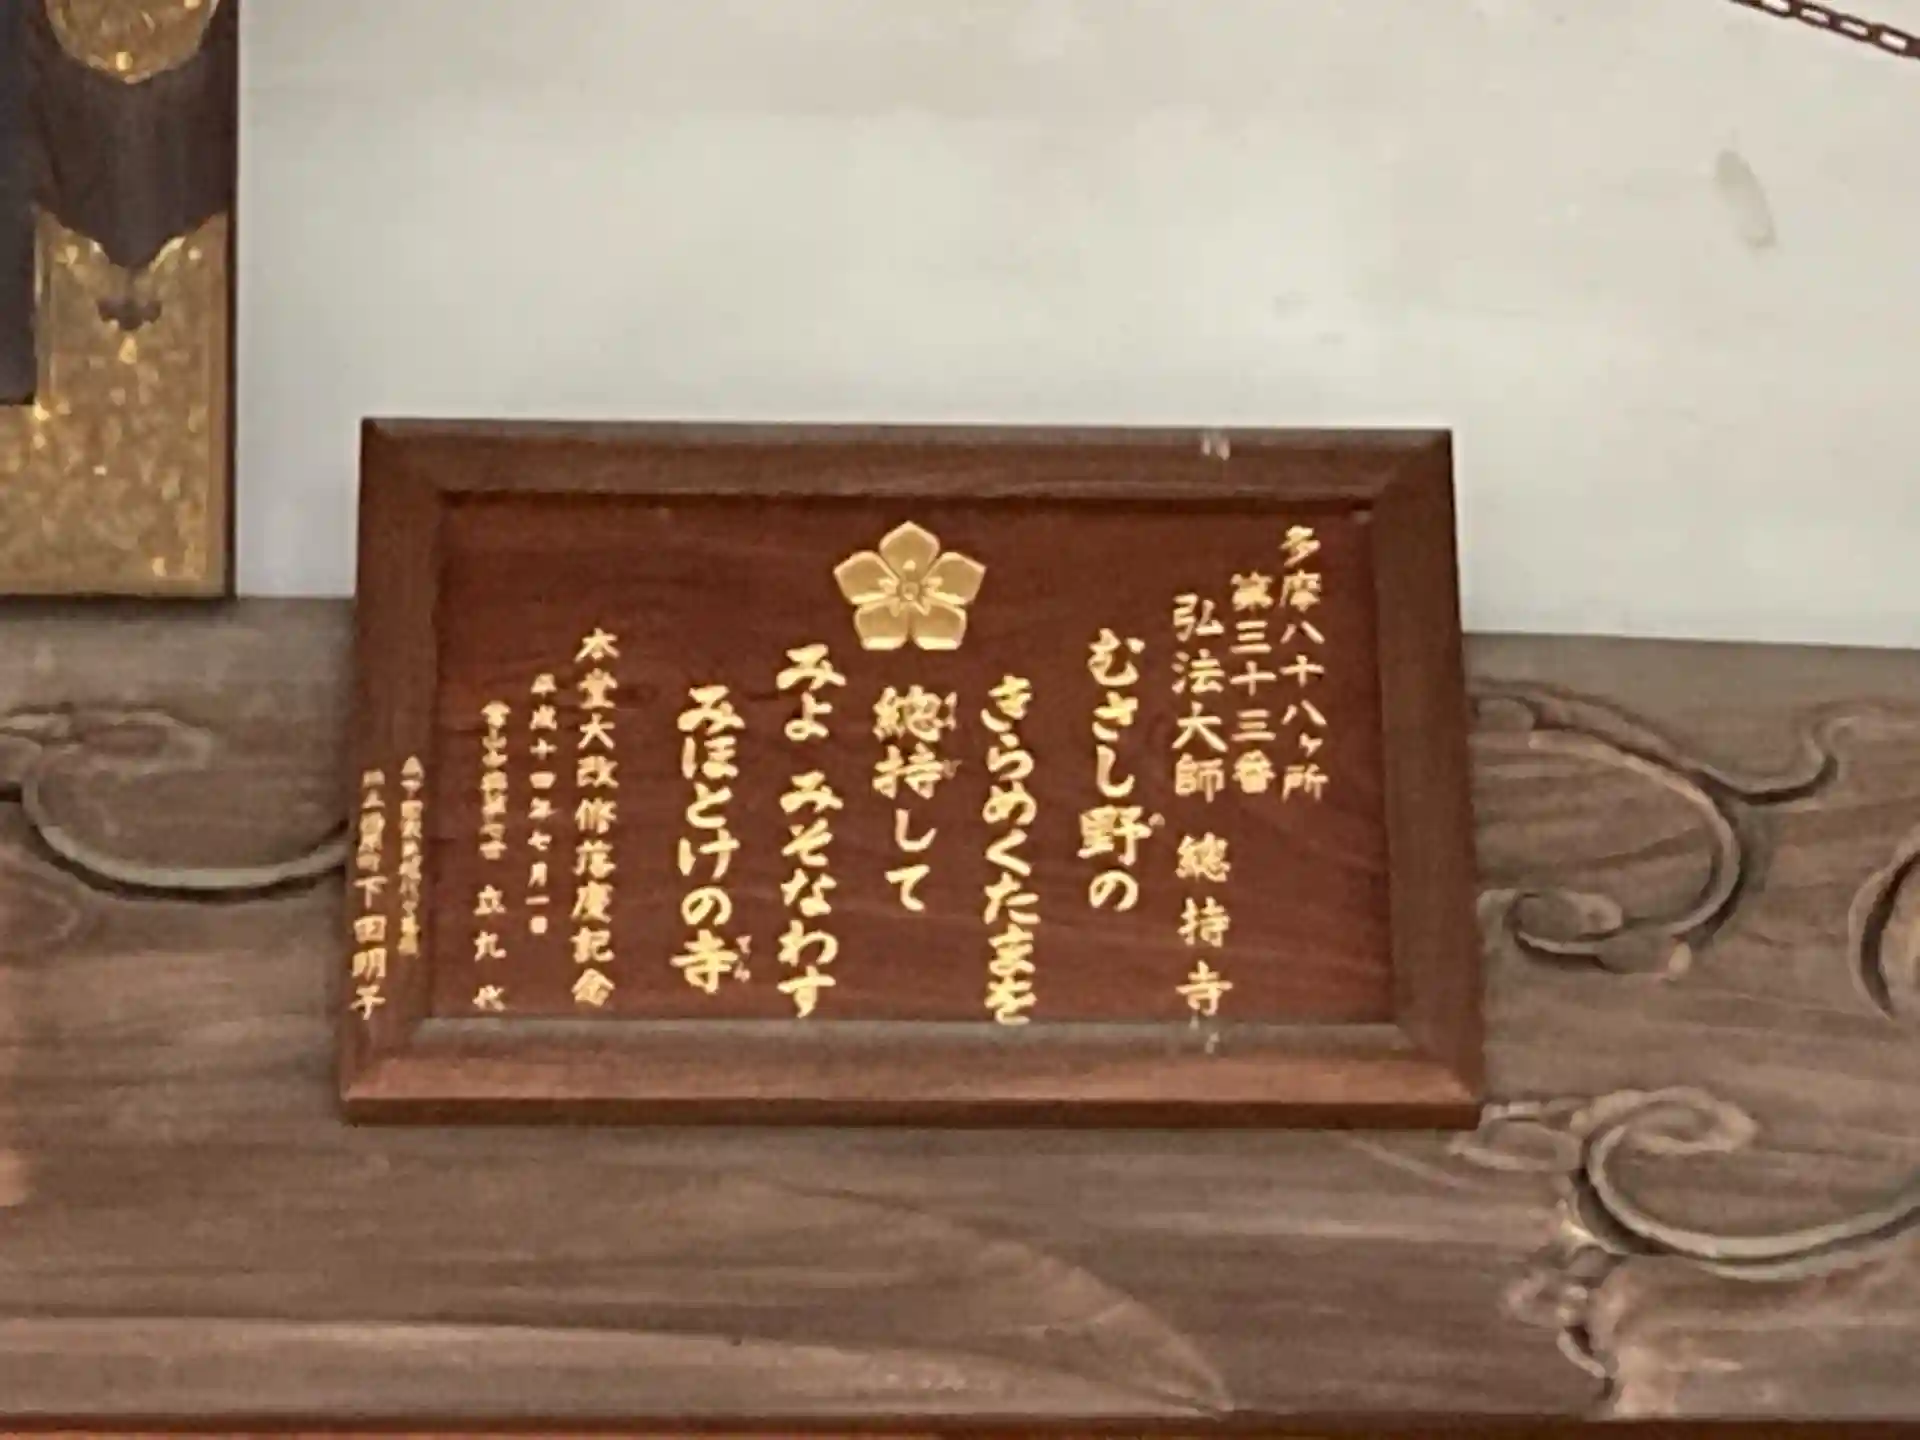 多摩八十八ヶ所
第三十三番
弘法大師 總持寺
むさし野の
きらめくたまを
總持して
みよ みそなわす
みほとけの寺
本堂大改修落慶記念
平成十四年七月一日
下田明子